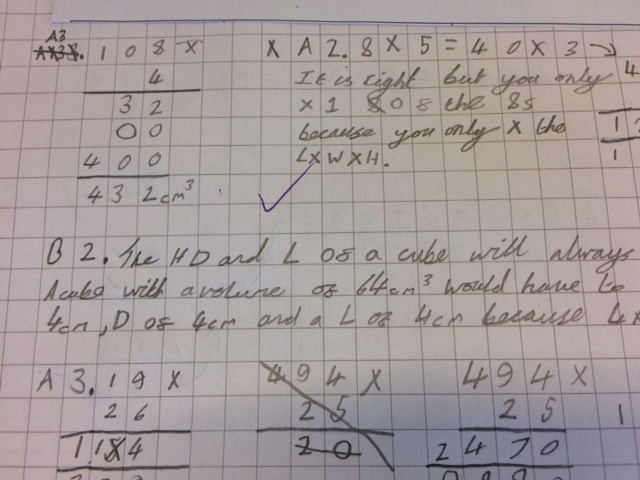 A3
108 X
4
32
00
400
432cm³
X A2. 8 X 5 = 40 X 3 →
It is right but you only
X 1 of the 8s
because you only X the
LXWXH.
4
1
1
B2. The H D and L of a cube will always
A cube with a volume of 64cm³ would have to
4cm, D of 4cm and a L of 4cm because 4x
A3. 19 X
26
114
494 X
25
20
494 X
25
2470
1